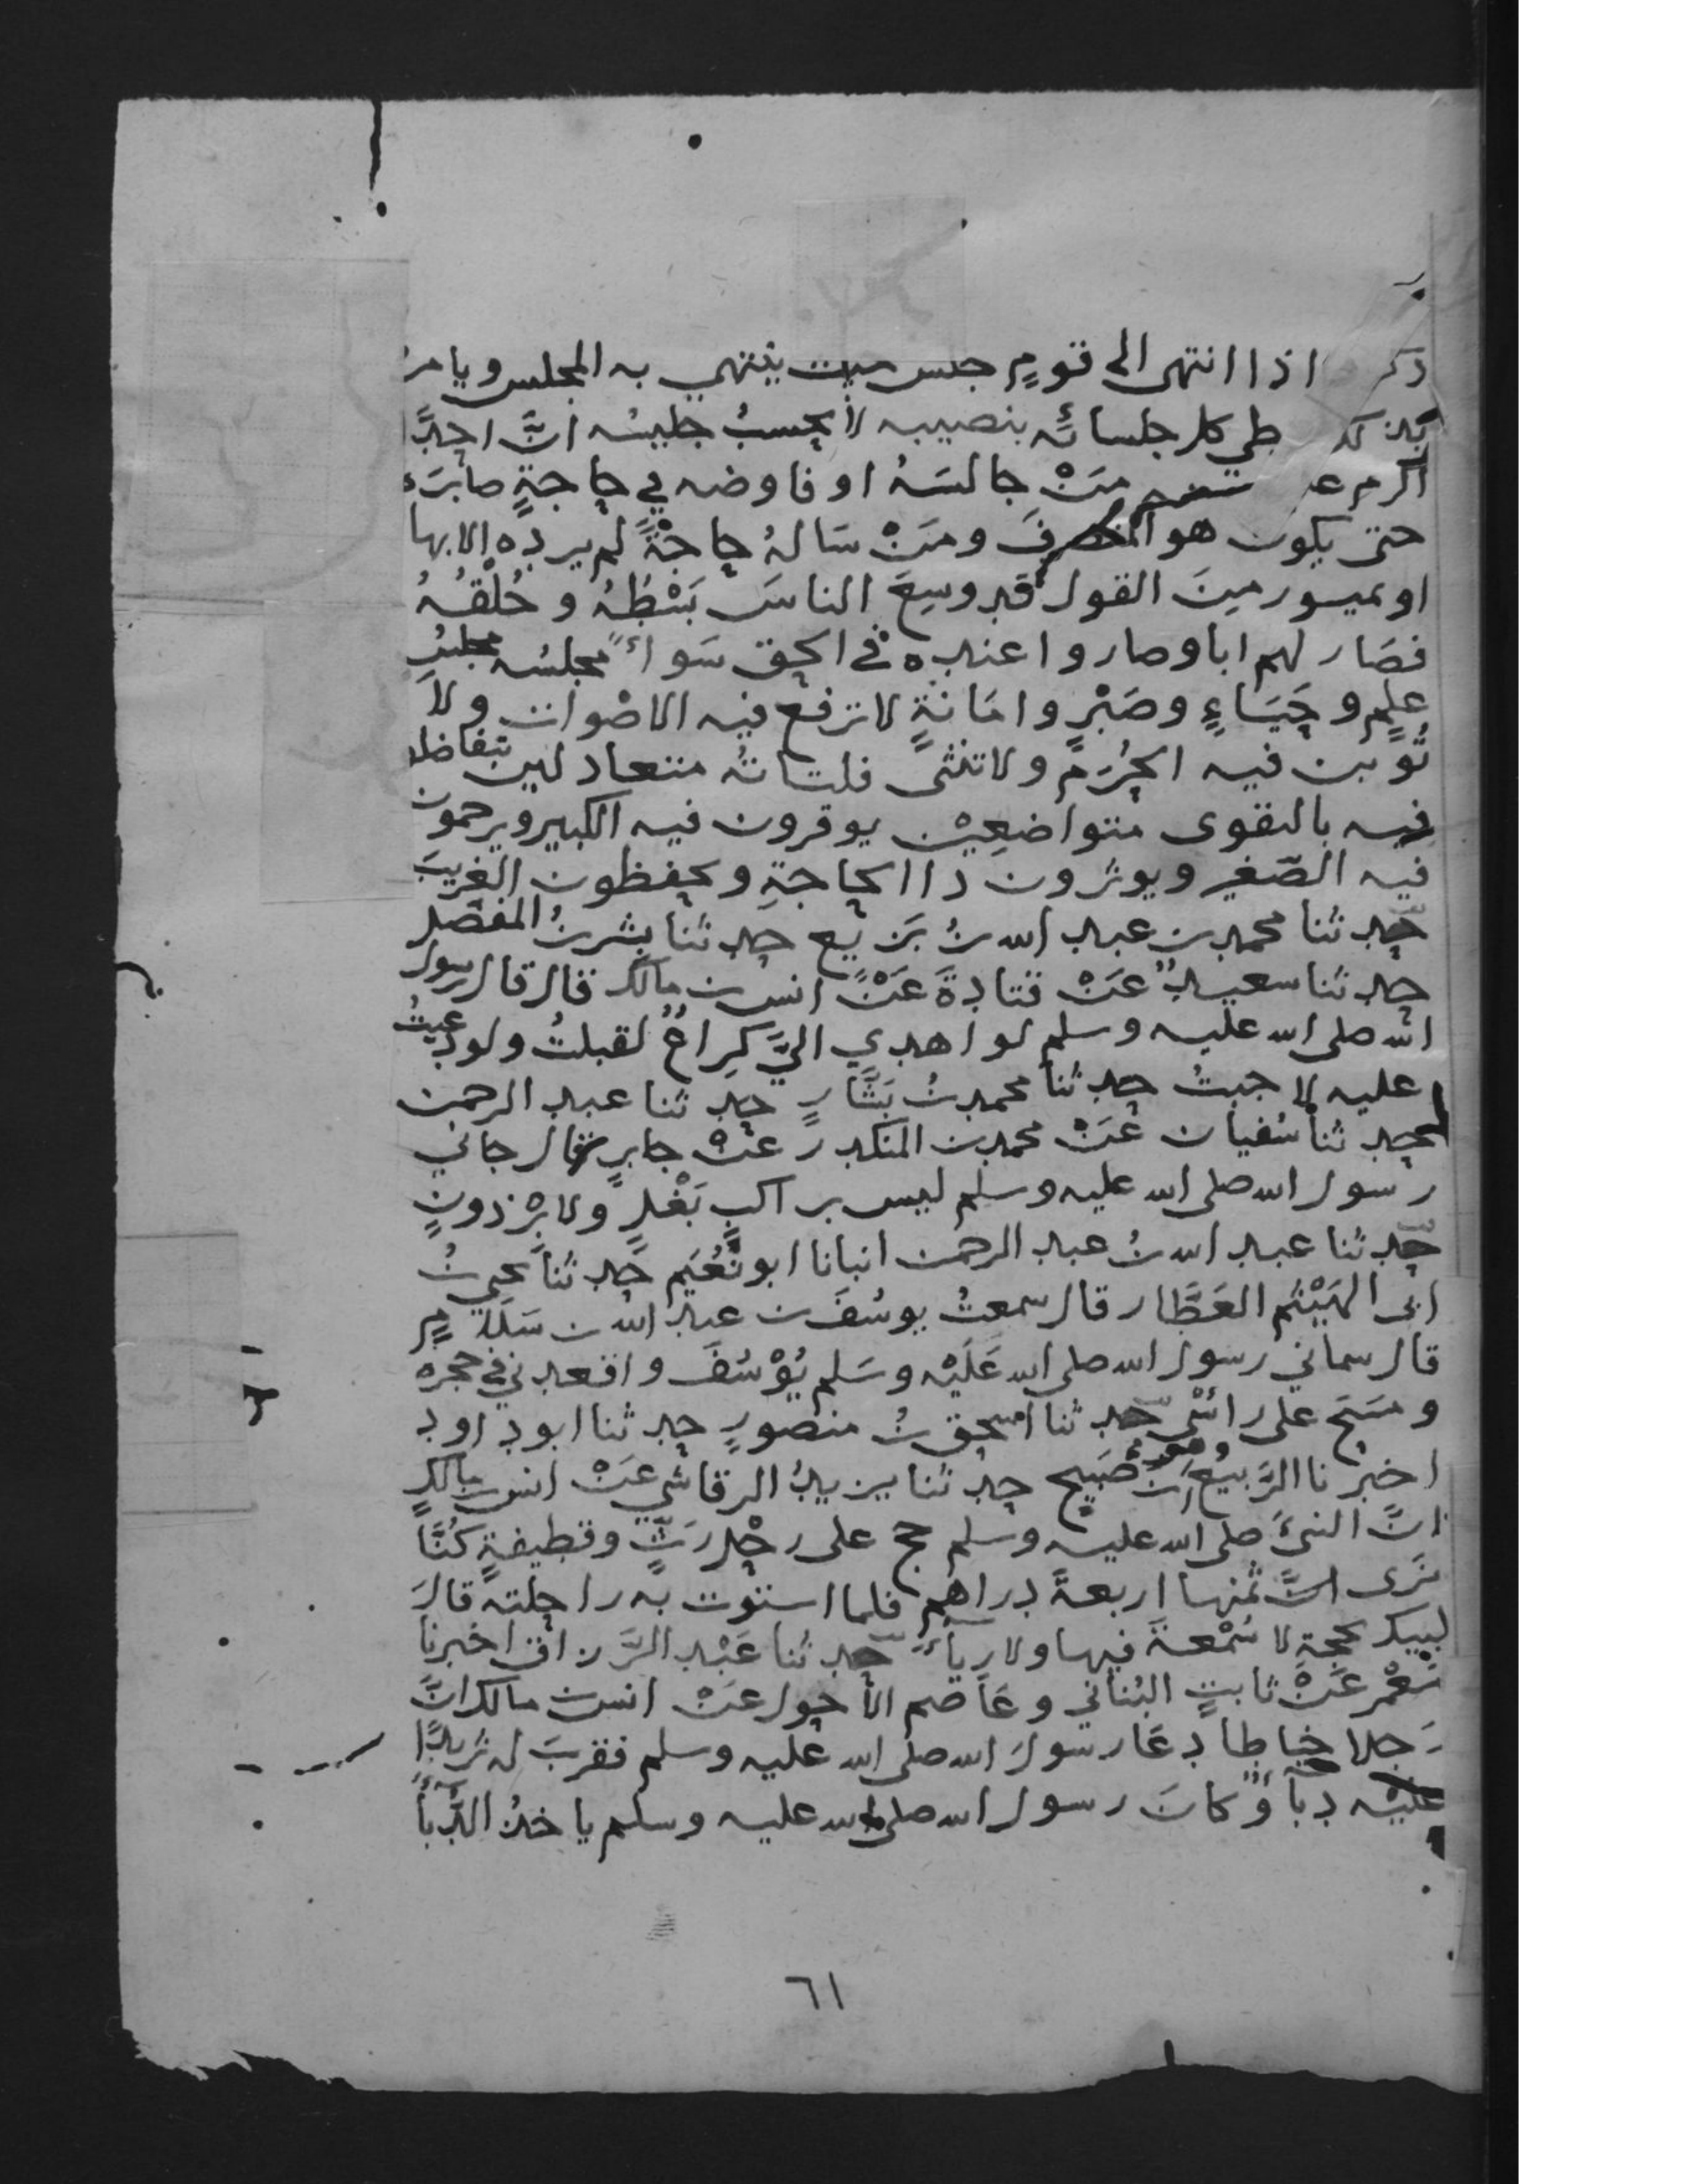 ذكر اذا انتهى الى قومٍ جلس حيث ينتهي به المجلس ويامر
بذلك طي كل جلسائه بنصيبه لا يحسبُ جليسُه انَّ احدًا
اكرم عليه منه مَنْ جالسَهُ او فاوضه في حاجةٍ صابرَه
حتى يكون هو المنصرفَ ومَنْ سَالهُ حاجةً لم يرده الا بها
او بميسور مِنَ القول قد وسِعَ الناسَ بَسْطُهُ وخُلْقُهُ
فصَار لهم ابا وصاروا عنده في الحق سَواءً مجلسُه مجلسُ
علمٍ وحَيَاءٍ وصَبْرٍ وامَانةٍ لا ترفع فيه الاصْوات ولا
تُوبن فيه الحُرَم ولا تنثى فلتاتُه متعادلين يتفاضلو
فيه بالتقوى متواضعِيْن يوقرون فيه الكبير ويرحمون
فيه الصّغير ويوثرون ذا الحاجةِ ويحفظون الغريبَ
حدثنا محمد بن عبد الله بنُ بَزيع حدثنا بشر بنُ المفضل
حدثنا سعيدٌ عَنْ قتادةَ عَنْ انس بن مالك قال قال رسول
الله صلى الله عليه وسلم لو اهدي اليَّ كراعٌ لقبلتُ ولو دعيتُ
عليه لاجبتُ حدثنا محمد بنُ بَشَّارٍ حدثنا عبد الرحمن
حدثنا سُفيان عَنْ محمد بن المنكدر عَنْ جابرٍ قال جاني
رسول الله صلى الله عليه وسلم ليس براكبِ بَغْلٍ ولا بِرْذونٍ
حدثنا عبد الله بنُ عبد الرحمن انبانا ابو نُعَيم حدثنا يحيى بنُ
ابي الهَيْثم العَطَّار قال سمعتُ يوسُفَ بن عبد الله بن سَلَامٍ
قال سماني رسول الله صلى الله عَلَيْه وسَلم يُوْسُفَ واقعدني في حجره
ومسَحَ على رائسي حدثنا اسحق بنُ منصورٍ حدثنا ابو داود
اخبرنا الرَّبيعُ وهو ابن صَبيح حدثنا يزيدُ الرقاشي عَنْ انس بن مالكٍ
انَّ النبيَّ صلى الله عليه وسلم حج على رحْلٍ رَثٍّ وقطيفةٍ كُنَّا
نَرى انَّ ثمنها اربعةُ دراهم فلما استوت به راحلتُه قالَ
لبيك بحجةٍ لا سُمْعةَ فيها ولا رياءَ حدثنا عَبْد الرَّزاق اخبرنا
مَعْمر عَنْ ثابتٍ البُناني وعَاصم الاحول عَنْ انس بن مالك انَّ
رَجلا خياطا دعَا رسولَ الله صلى الله عليه وسلم فقربَ له ثريدًا
عليْه دبآ وكانَ رسول الله صلى الله عليه وسلم ياخذ الدُّبآ
٦١